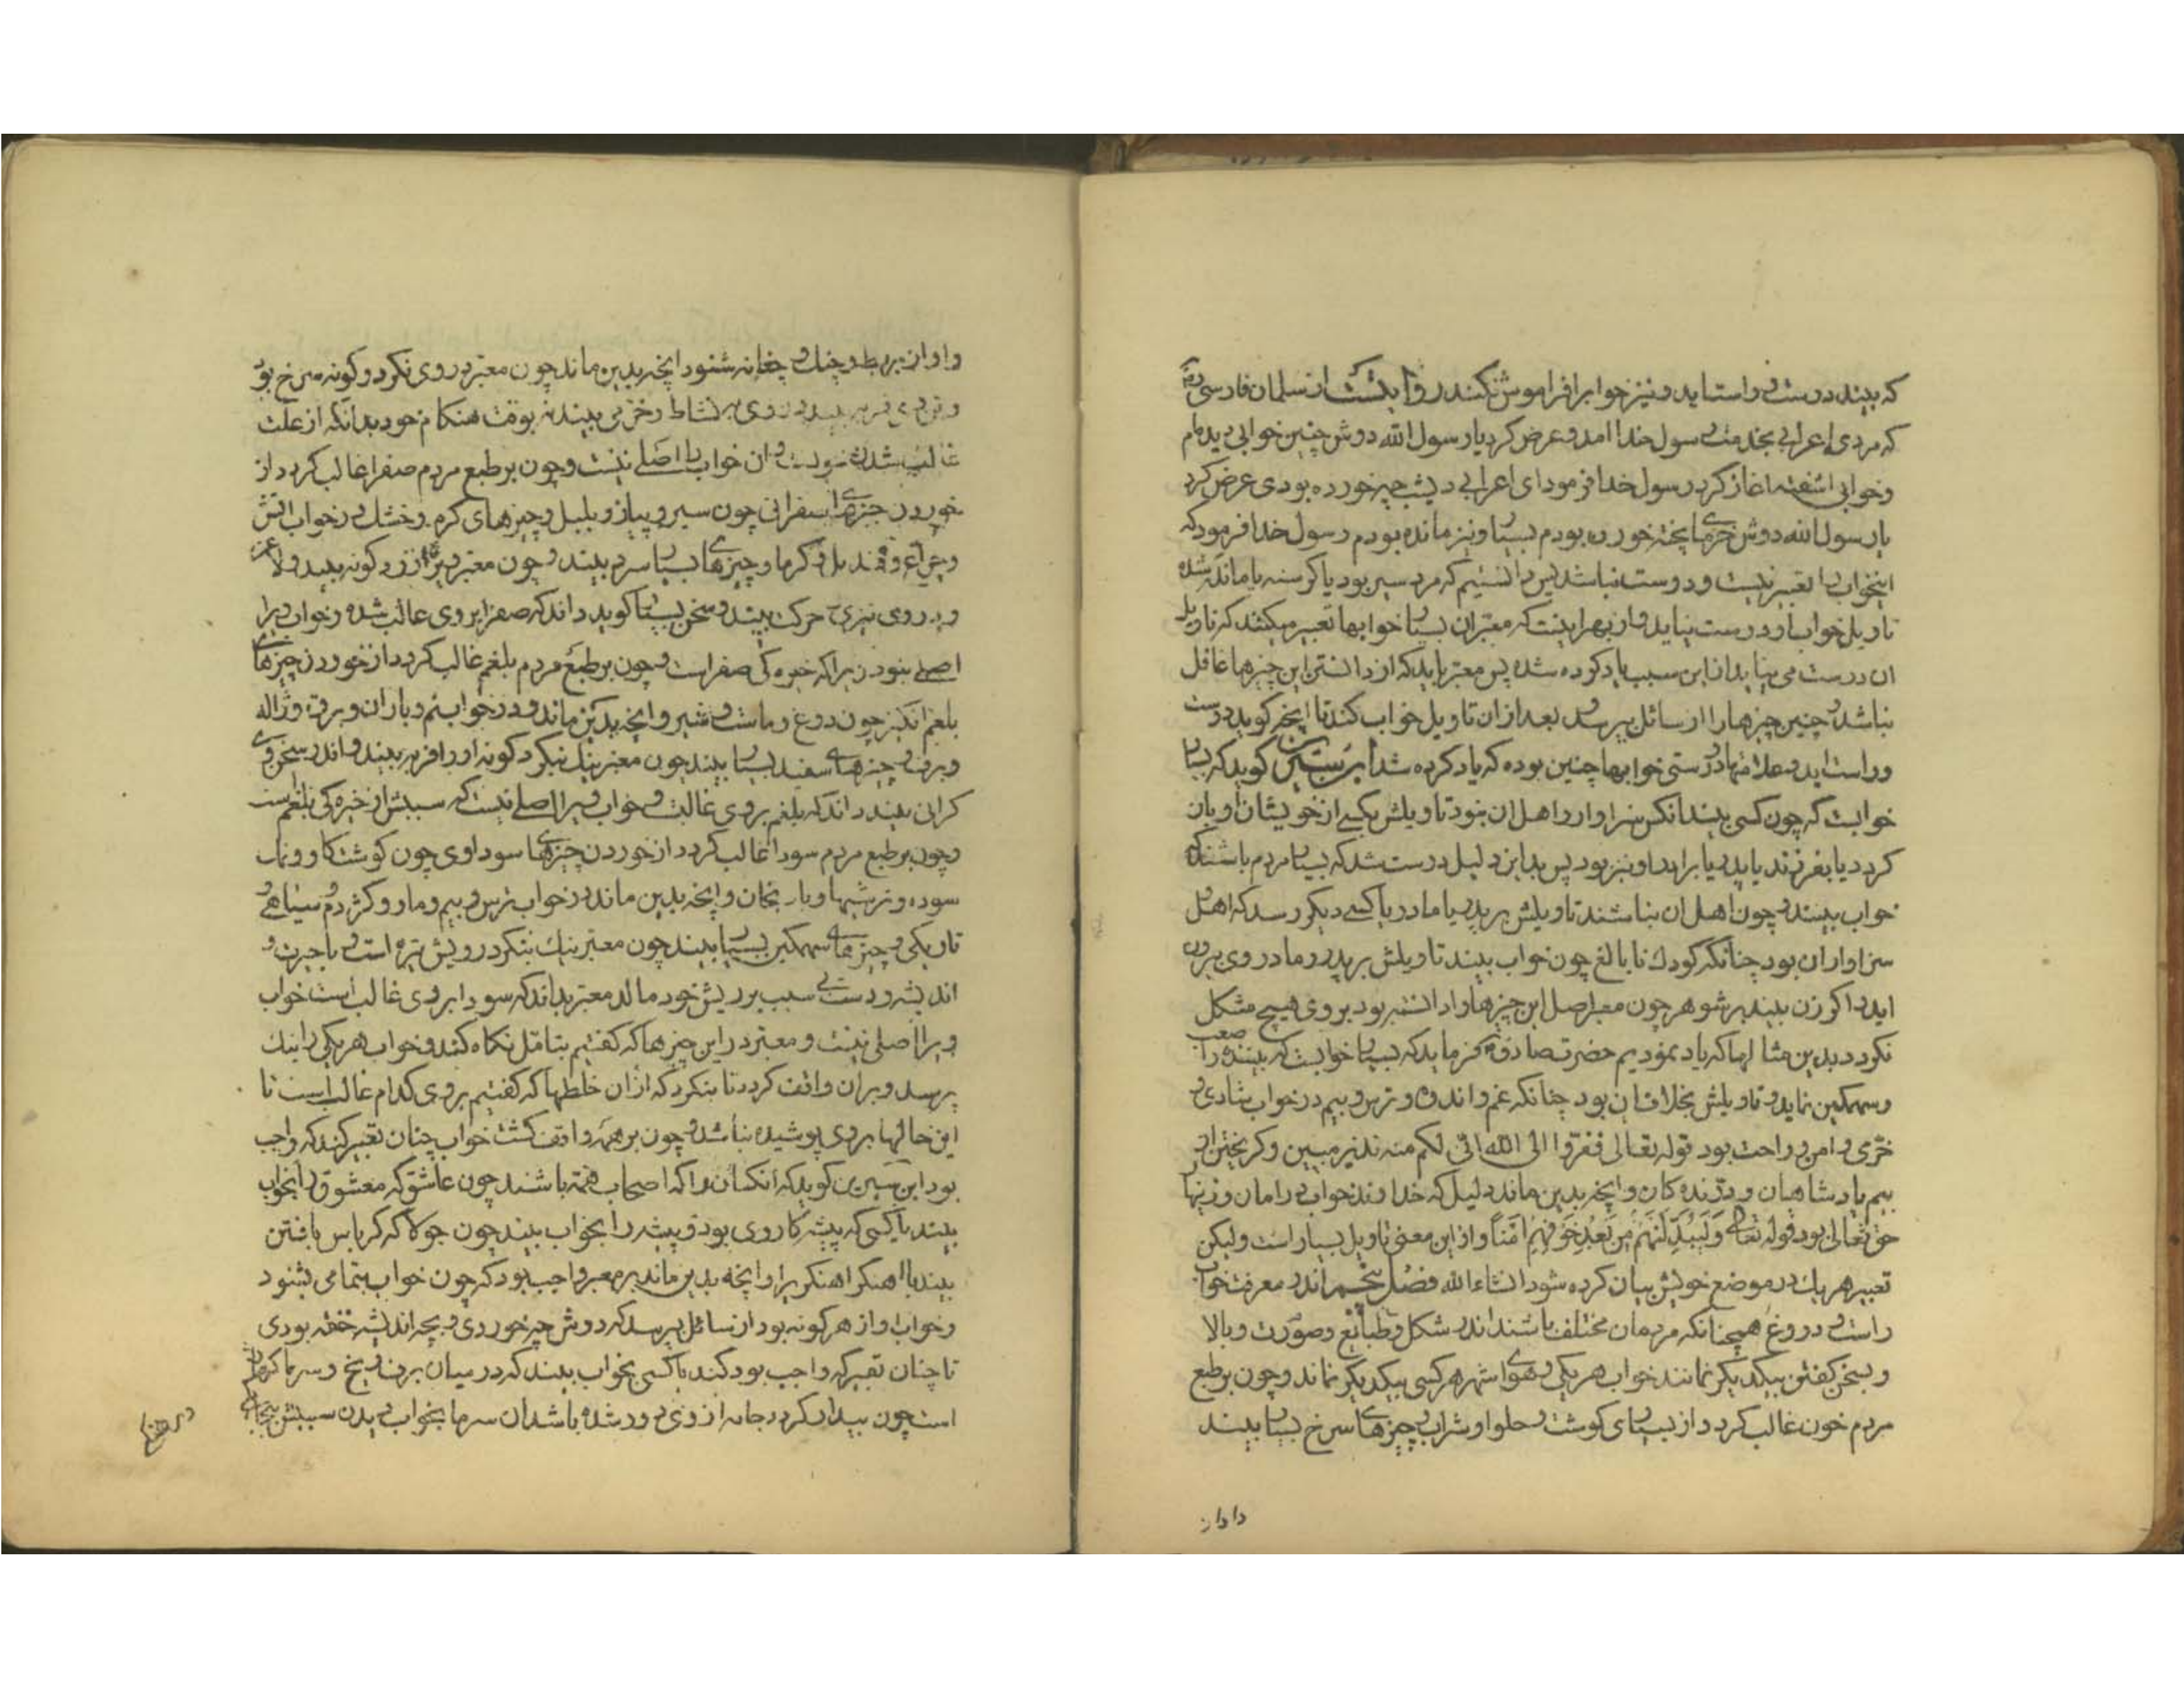 که بیند درست و راست اید و نیز خوابرا فراموش نکند روایتست از سلمان فارسی رض
که مردی اعرابی بخدمت رسول خدا امد و عرض کرد یا رسول الله دوش چنین خوابی دیده ام
وخوابی اشفته اغاز کرد رسول خدا فرمود ای اعرابی دیشب چه خورده بودی عرض کرد
یا رسول الله دوش خرمای پخته خورده بودم بسیار و نیز مانده بودم رسول خدا فرمود که
اینخواب را تعبیر نیست و درست نباشد پس دانستیم که مرد سیر بود یا کرسنه یا مانده شده
تاویل خواب او درست نیاید و از بهر اینست که معبران بسیار خوابها تعبیر میکنند که تاویل
ان درست می نیاید از این سبب یاد کرده شده پس معبر باید که از دانستن این چیزها غافل
نباشد و چنین چیزها را از سائل بپرسد و بعد از ان تاویل خواب کند تا انچه کوید درست
و راست اید و علامتها درستی خوابها چنین بوده که یاد کرده شد ابن سیرین کوید که بسیار
خوابست که چون کسی بیند انکس سزاوار و اهل ان نبود تاویلش بکسی از خویشان او باز
کردد یا بفرزند یا پدر یا برادر او نیز بود پس بدین دلیل درست شد که بسیار مردم باشند که
خواب بینند و چون اهل ان نباشند تاویلش بر پدر یا مادر یا کسی دیکر رسد که اهل
سزاوار ان بود چنانکه کودک نابالغ چون خواب بیند تاویلش بر پدر و مادر وی بیرون
اید و اکر زن بیند بر شوهر چون معبر اصل این چیزها را دانسته بود بر وی هیچ مشکل
نکردد بدین مثالها که یاد نمودیم حضرت صادق ع فرماید که بسیار خوابست که بیننده را صعب
و سهمکین نماید و تاویلش بخلاف ان بود چنانکه غم و اندوه و ترس و بیم در خواب شادی و
خرمی و امن و راحت بود قوله تعالی ففروا الی الله انی لکم منه نذیر مبین و کریختن از
بیم پادشاهان و درنده کان و انچه بدین ماند دلیل که خداوند خواب در امان و زینهار
حق تعالی بود قوله تعالی وَلَیُبَدِّلَنَّهُم مِن بَعدِ خَوفِهِم اَمناً و از این معنی تاویل بسیار است ولیکن
تعبیر هر یک در موضع خویش بیان کرده شود انشاء الله فصل پنجم اندر معرفت خواب
راست و دروغ همچنانکه مردمان مختلف باشند اندر شکل و طبائع و صورت و بالا
و بسخن کفتن بیکدیکر نمانند خواب هر یکی و هوای شهر هر کسی بیکدیکر نماند و چون بر طبع
مردم خون غالب کردد از بسیاری کوشت و حلوا و شراب و چیزهای سرخ بسیار بیند
واواز
واواز بربط و چنک و چغانه شنود و انچه بدین ماند چون معبر در روی نکرد و کونه سرخ بود
غالب شدن خونست و ان خواب را اصلی نیست و چون بر طبع مردم صفرا غالب کردد از
خوردن چیزهای صفرائی چون سیر و پیاز و بلبل و چیزهای کرم و خشک در خواب اتش
و چراغ و قندیل و کرما و چیزهای بسیار سرد بیند و چون معبر ویرا زرد کونه بیند و لاغر
و در وی تیزی حرکت بیند و سخن بسیار کوید داند که صفرا بر وی غالب شده و خواب ویرا
اصلی نبود زیرا که خیره کی صفراست و چون بر طبع مردم بلغم غالب کردد از خوردن چیزهای
بلغم انکیز چون دوغ و ماست و شیر و انچه بدین ماند و در خواب نم و باران و برق و ژاله
و برف و چیزهای سفید بسیار بیند چون معبر نیک نیکرد کونه او را فربه بیند و اندر سخن وی
کرانی بیند داند که بلغم بر وی غالبست و خواب ویرا اصلی نیست که سببش از خیره کی بلغم است
و چون بر طبع مردم سودا غالب کردد از خوردن چیزهای سوداوی چون کوشت کاو و نمک
سوده و ترشیها و بادنجان و انچه بدین ماند در خواب ترس و بیم و مار و کژدم و سیاهی و
تاریکی و چیزهای سهمکین بسیار بیند چون معبر نیک بنکرد رویش تیره است و با حیرت و
اندیشه و دست بی سبب بر ریش خود مالد معبر بداند که سودا بر وی غالب است خواب
ویرا اصلی نیست و معبر در این چیزها که کفتیم بتامّل نکاه کند و خواب هر یکی را نیک
پرسد و بران واقف کردد تا بنکرد که از ان خلطها که کفتیم بر وی کدام غالب است تا
این حالها بر وی پوشیده نباشد و چون بر همه واقف کشت خواب چنان تعبیر کند که واجب
بود ابن سیرین کوید که انکسان را که اصحاب همّه باشند چون عاشق که معشوق را بخواب
بیند یا کسی که پیشه کار وی بود و پیشه را بخواب بیند چون جولاه که کرباس بافتن
بیند یا اهنکر اهنکریرا و انچه بدین ماند بر معبر واجب بود که چون خواب بتمامی بشنود
و خواب او از هر کونه بود از سائل بپرسد که دوش چه خوردی و بچه اندیشه خفته بودی
تا چنان تعبیر که واجب بود کند یا کسی بخواب بیند که در میان برف و یخ و سرما کرفتار
است چون بیدار کردد جامه از وی دور شده باشد ان سرما بخواب دیدن سببش